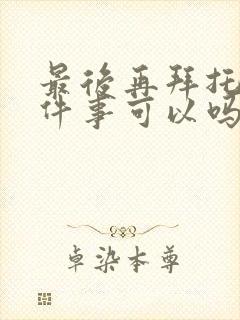 最後再拜托
件事可以吗
卓染本尊